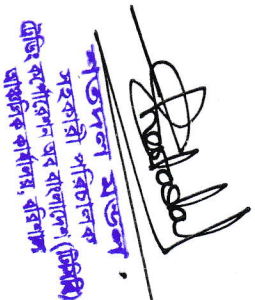 শতদল মন্ডল
সহকারী পরিচালক
ট্রেডিং কর্পোরেশন অব বাংলাদেশ (টিসিবি)
আঞ্চলিক কার্যালয়, বরিশাল